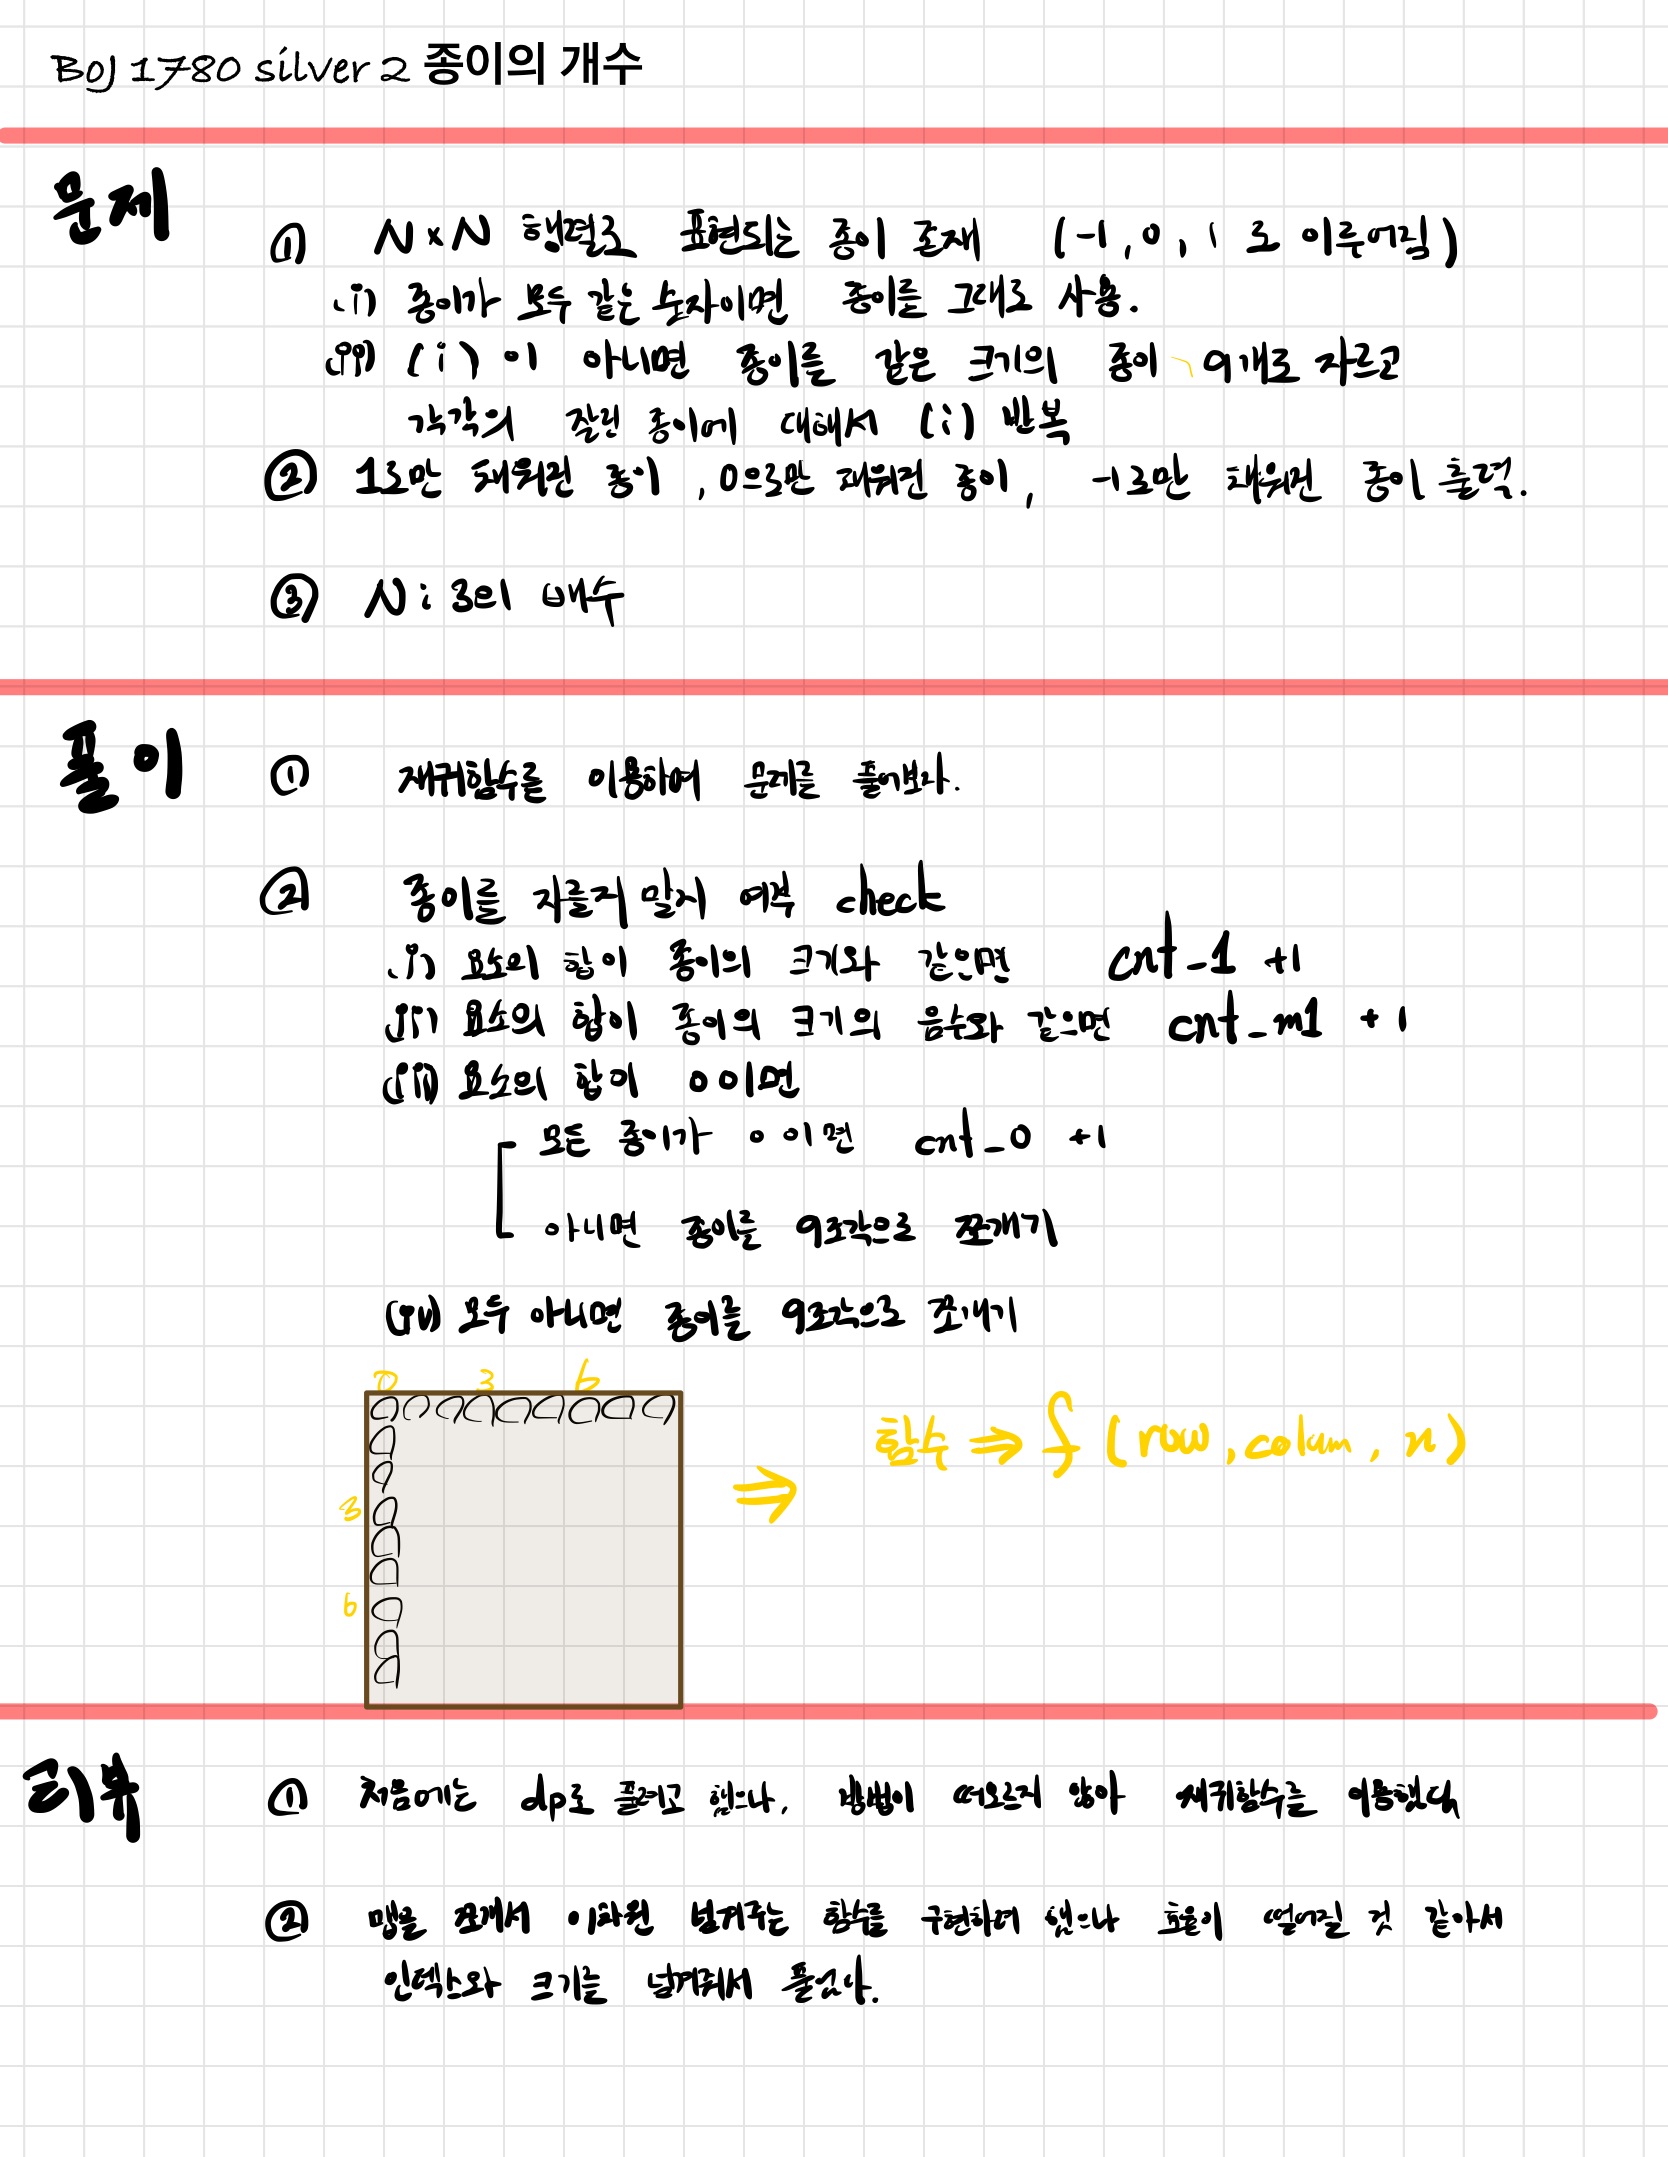 BOJ 1780 silver 2 종이의 개수
문제
① N x N 행렬로 표현되는 종이 존재 (-1, 0, 1 로 이루어짐)
(i) 종이가 모두 같은 숫자이면 종이를 그대로 사용.
(ii) (i)이 아니면 종이를 같은 크기의 종이 9개로 자르고
각각의 잘린 종이에 대해서 (i) 반복
② 1로만 채워진 종이, 0으로만 채워진 종이, -1로만 채워진 종이 출력.
③ N : 3의 배수
풀이
① 재귀함수를 이용하여 문제를 풀어보자.
② 종이를 자를지 말지 여부 check
(i) 요소의 합이 종이의 크기와 같으면 cnt_1 +1
(ii) 요소의 합이 종이의 크기의 음수와 같으면 cnt_m1 +1
(iii) 요소의 합이 0이면
모든 종이가 0이면 cnt_0 +1
아니면 종이를 9조각으로 쪼개기
(iv) 모두 아니면 종이를 9조각으로 쪼개기
0 3 6
3
6
함수 ⇒ f (row, colum, n)
리뷰
① 처음에는 dp로 풀려고 했으나, 방법이 떠오르지 않아 재귀함수를 이용했다.
② 맵을 쪼개서 이차원 넘겨주는 함수를 구현하려 했으나 효율이 떨어질 것 같아서
인덱스와 크기를 넘겨줘서 풀었다.